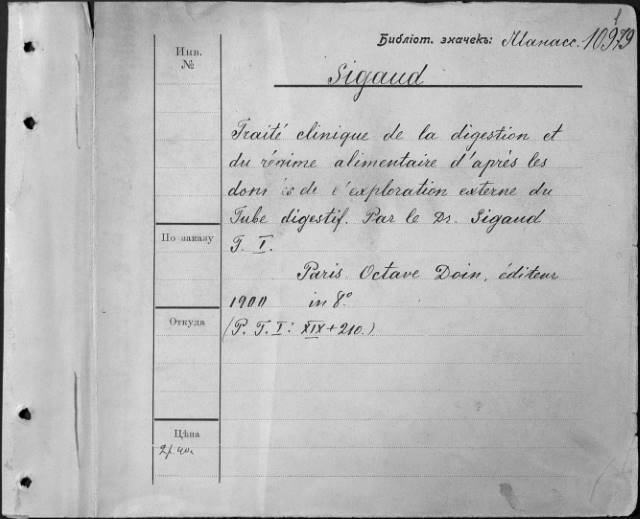 Библіот. значекъ: Манасс. 10979
Инв.
№
Sigaud
Traité clinique de la digestion et
du régime alimentaire d'après les
données de l'exploration externe du
Tube digestif. Par le Dr. Sigaud
По заказу
T. I.
Paris Octave Doin, éditeur
1900 in 8º
Откуда
(P. T. I: XIX+210.)
Цѣна
2 р. 40 к.